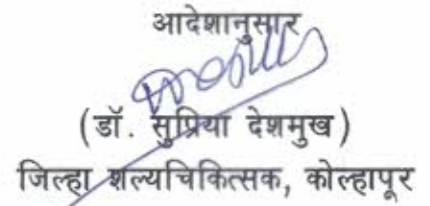 आदेशानुसार
(डॉ. सुप्रिया देशमुख)
जिल्हा शल्यचिकित्सक, कोल्हापूर